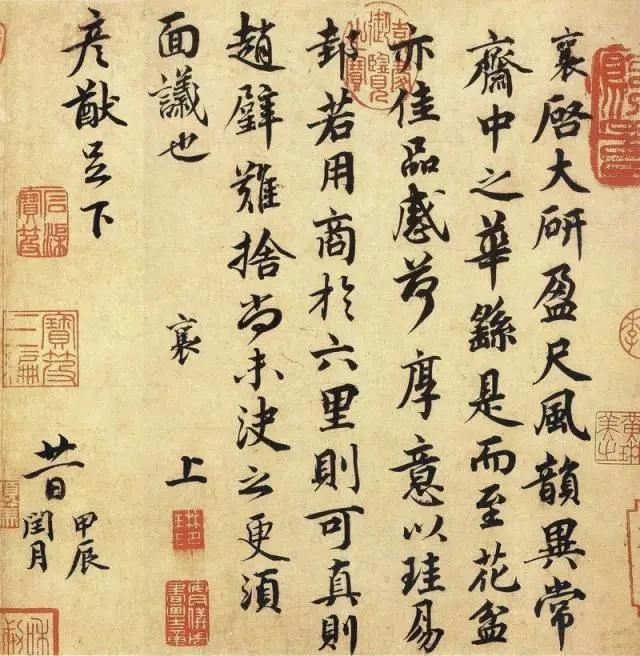 襄啓大研盈尺風韻異常
齋中之華繇是而至花盆
亦佳品感荷厚意以珪易
邽若用商於六里則可真則
趙璧難捨尚未決之更須
面議也
襄上
彥猷足下
廿一日
甲辰
閏月